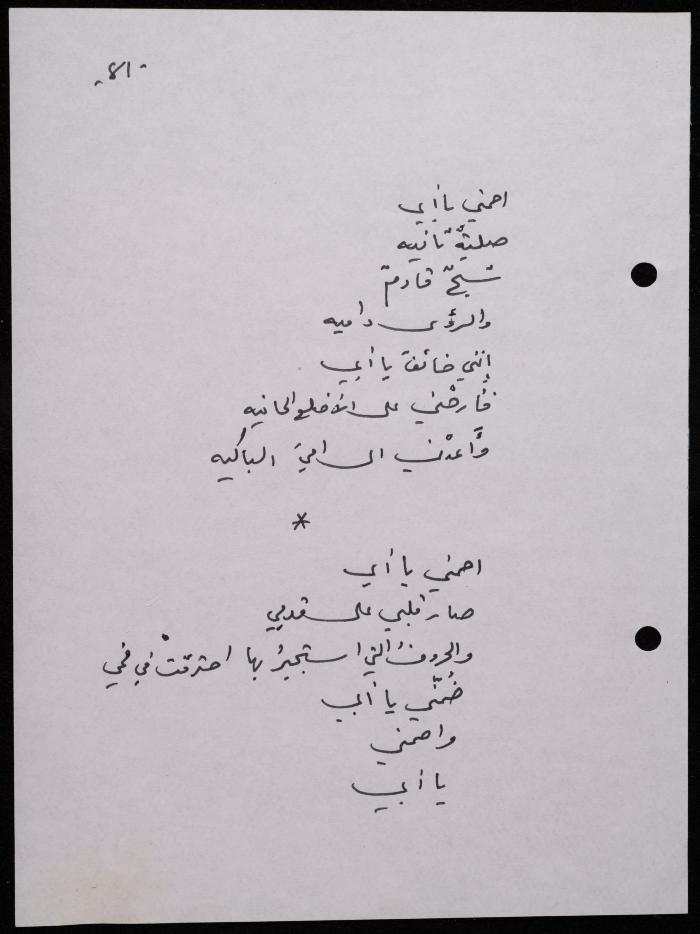 -١٨-
احمني يا أبي
صليةٌ ثانيه
شبحٌ قادمٌ
والرؤى داميه
إنني خائفٌ يا أبي
فأرحْني على الأضلع الحانيه
وَأعدْني الى اميَ الباكيه
*
احمني يا أبي
صار قلبي على قدمي
والحروفُ التي استجيرُ بها احترقتْ في فمي
ضُمّني يا أبي
واحمني
يا أبي